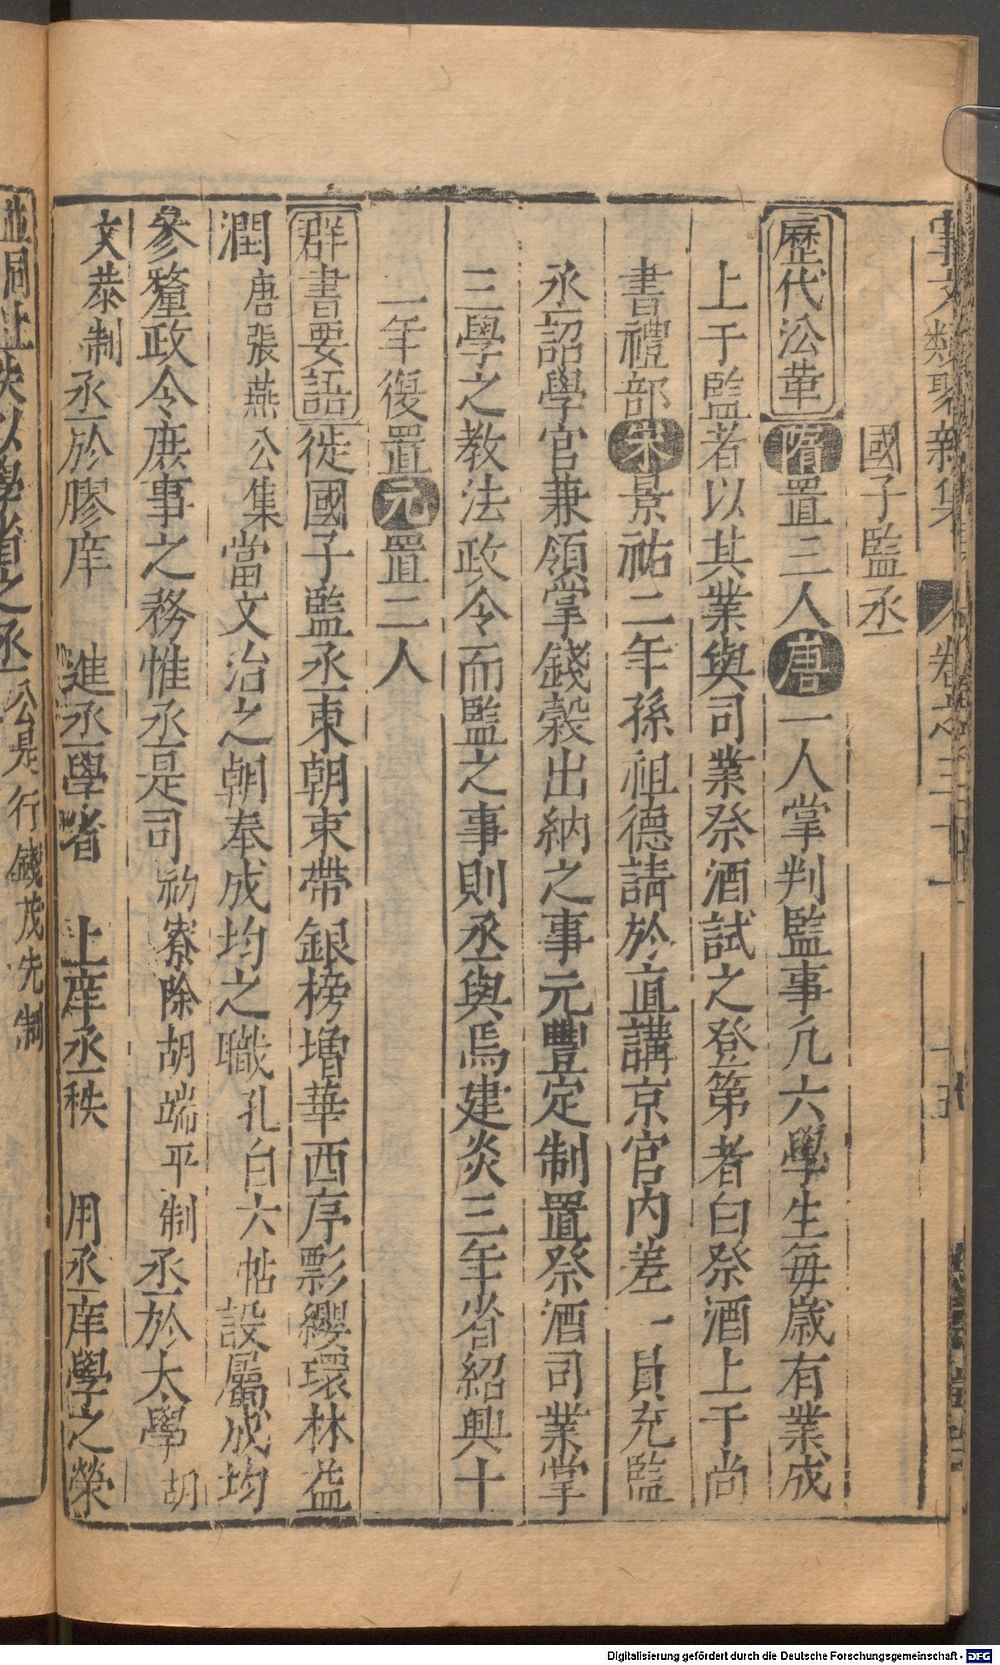 事文類聚新集 卷之三十一 十五
國子監丞
歷代沿革 隋置三人唐一人掌判監事凡六學生每歳有業成
上于監者以其業與司業祭酒試之登第者白祭酒上于尚
書禮部宋景祐二年孫祖德請於直講京官内差一員充監
丞詔學官兼領掌錢穀出納之事元豐定制置祭酒司業掌
三學之教法政令而監之事則丞與焉建炎三年省紹興十
一年復置元置二人
群書要語 徙國子監丞東朝束帶銀榜増華西序影纓環林益
潤唐張燕公集當文治之朝奉成均之職孔白六帖設屬成均
參釐政令庶事之務惟丞是司 寮除胡端平制丞於太學胡
文恭制丞於膠庠 進丞學省 上庠丞秩 用丞庠學之榮
秩以學省之丞公是行錢茂先制
Digitalisierung gefördert durch die Deutsche Forschungsgemeinschaft - DFG